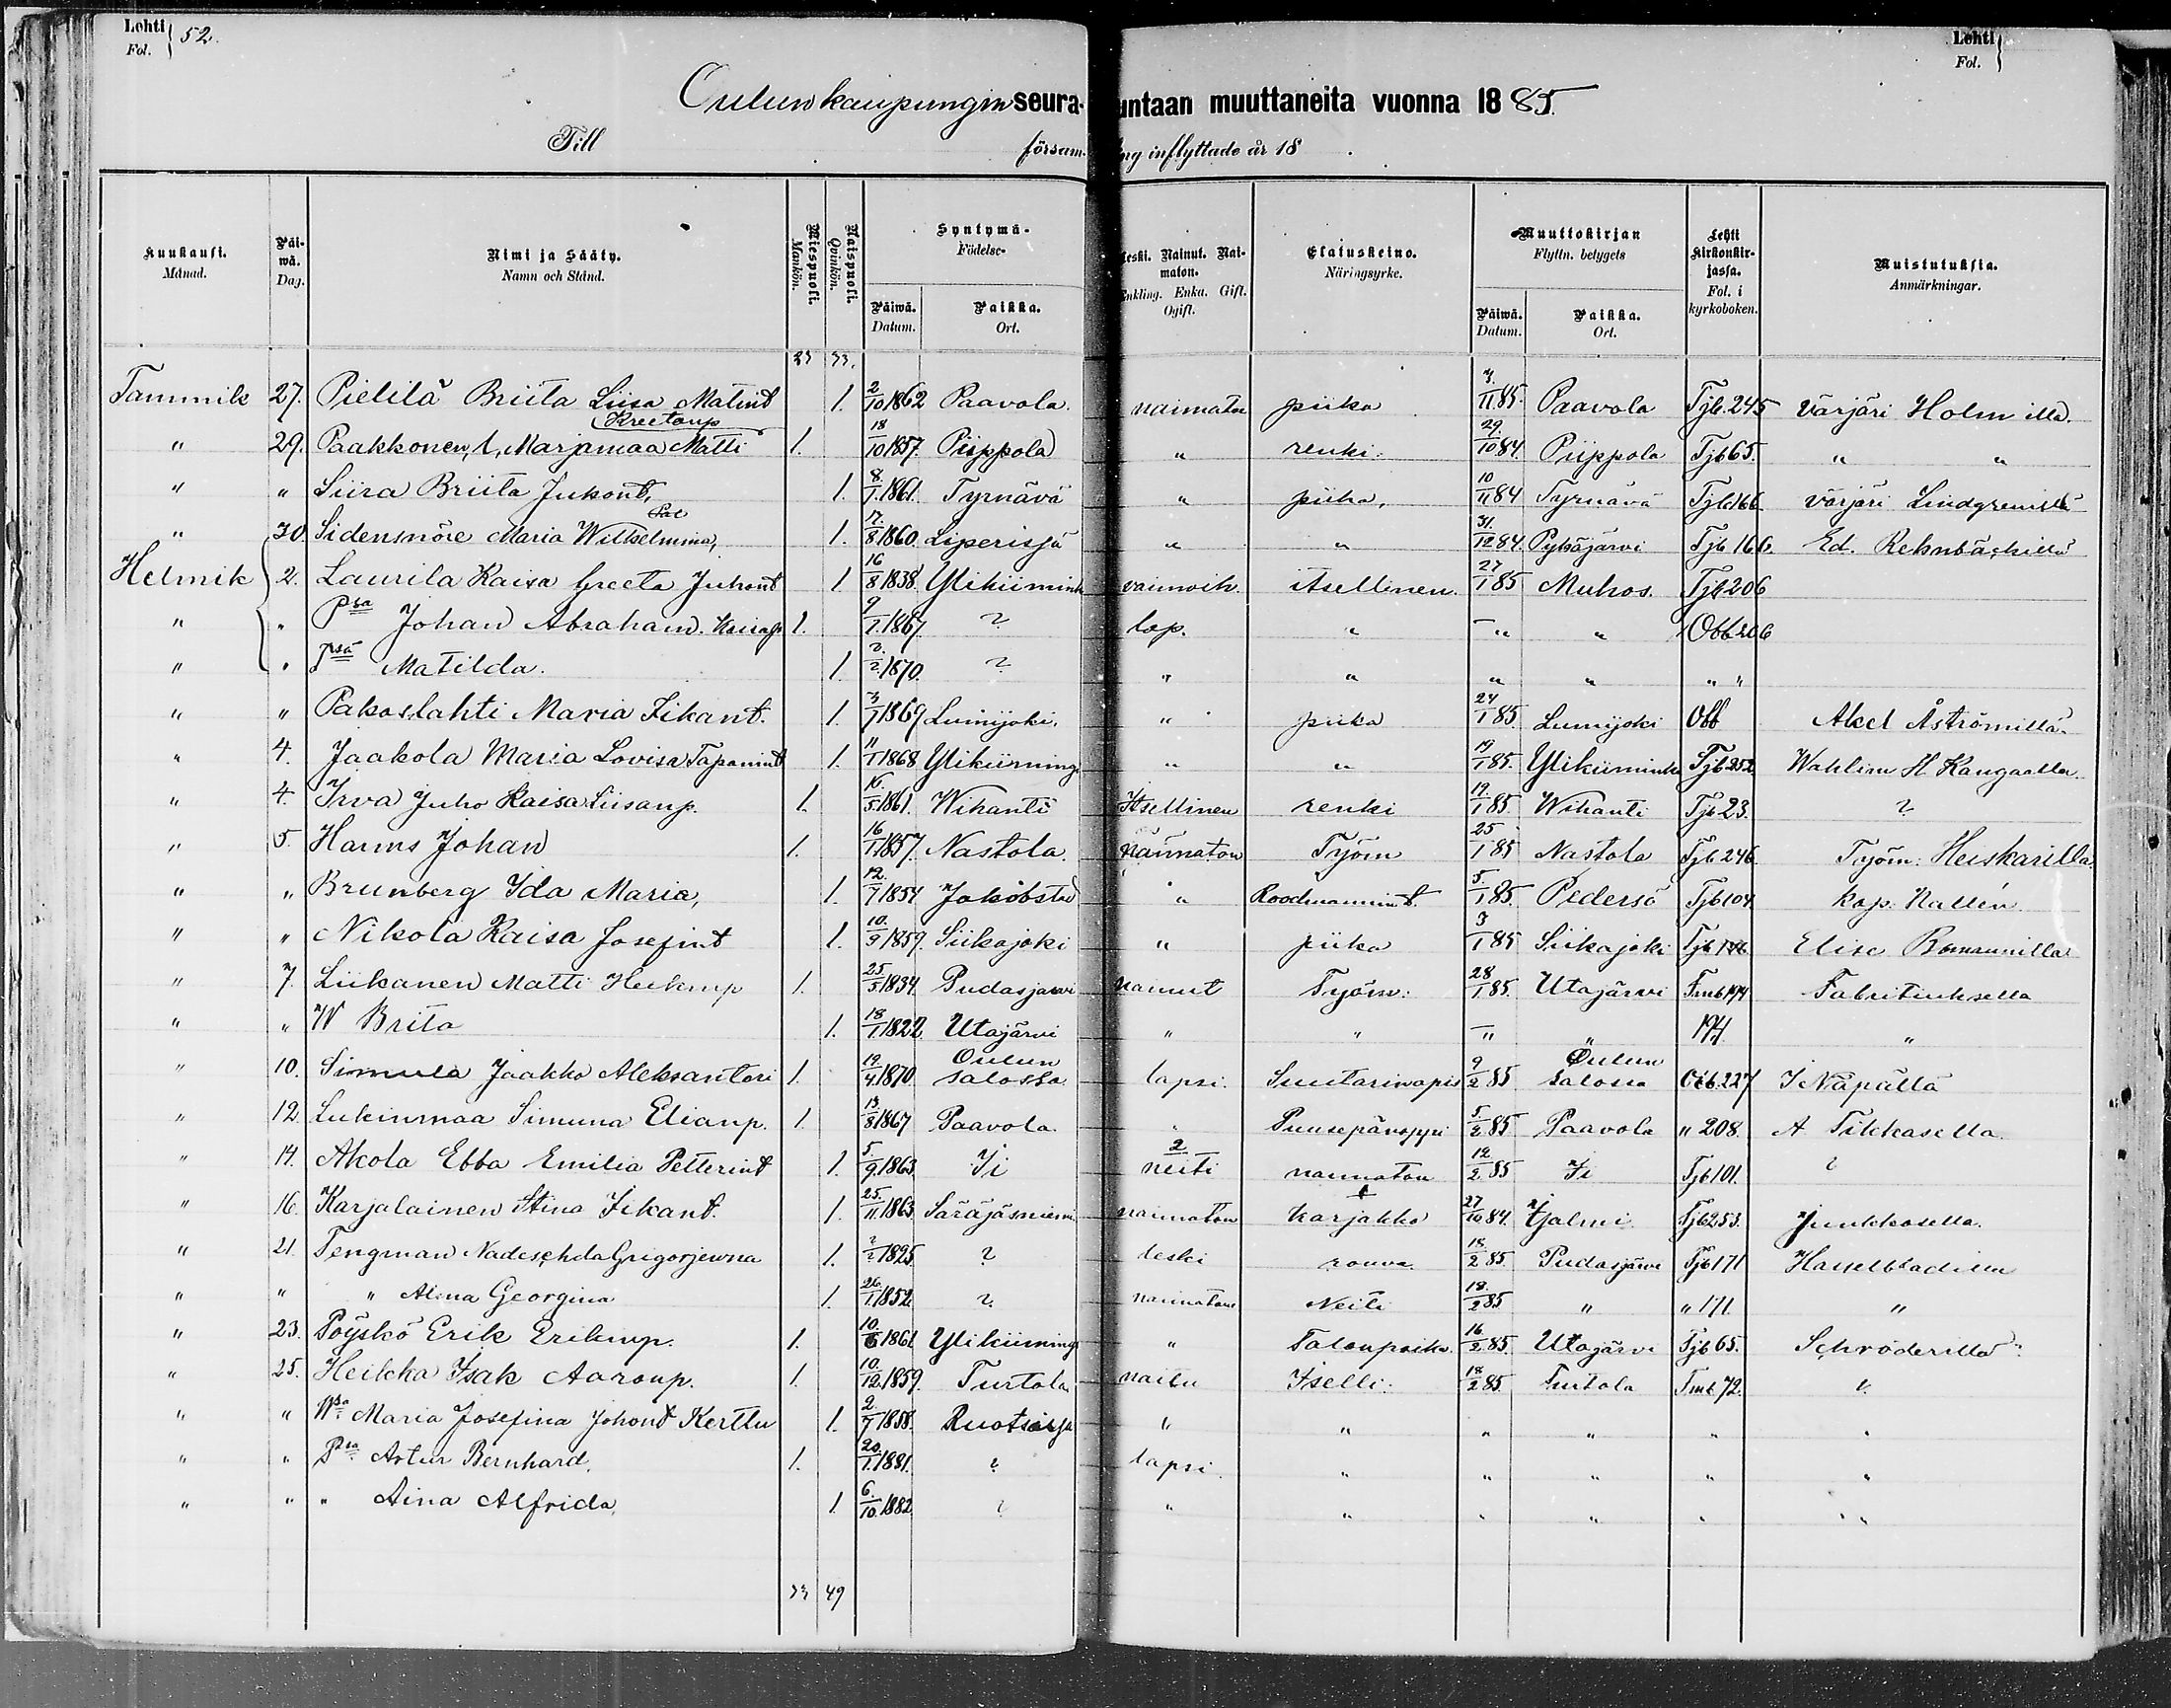 Lehti
Fol. 52.
Lehti
Fol.
Oulun kaupungin seurakuntaan muuttaneita vuonna 1885.
Till församling inflyttade år 18 .
Kuukausi. Månad.
Päiwä. Dag.
Nimi ja Sääty. Namn och Stånd.
Miespuoli. Mankön.
Naispuoli. Qvinkön.
Syntymä- Födelse-
Päiwä. Datum.
Paikka. Ort.
Leski. Nainut. Naimaton. Enkling. Enka. Gift. Ogift.
Elatuskeino. Näringsyrke.
Muuttokirjan Flyttn. betygets
Päiwä. Datum.
Paikka. Ort.
Lehti kirkonkirjassa. Fol. i kyrkoboken.
Muistutuksia. Anmärkningar.
23 33.
Tammik 27. Pietilä Briita Liisa Matint 1. 2/10 1862 Paavola. naimaton piika 3./11 85. Paavola Tjb. 245 värjäri Holm illa.
" 29. Paakkonen, l, Marjamaa Matti Kreetanp 1. 18/10 1857. Piippola " renki. 29./10 84. Piippola Tjb 65. " "
" " Siira Briita Jukont, 1. 8/7 1861. Tyrnävä " piika, 10/11 84 Tyrnävä Tjb 166. värjäri Lindgrenillä
" 30. Sidensnöre Maria Wilhelmina, 1. 17./8 1860. Liperissä " " 31./12 84. Pyhäjärvi Tjb 166. Ed. Rehnbäckillä
Helmik 2. Laurila Kaisa Greeta Juhont 1. 16/8 1838. Ylikiimink vaimoih. itsellinen. 27/1 85 Muhos. Tjb 206
" " Psa Johan Abraham. Kaisap 1. 9/1. 1867 ? lap. " – " " Obb 206
" " Tsä Matilda. 1. ?/? 1870. ? " " " " " "
" " Pakaslahti Maria Iikant. 1. 3/7 1869 Lumijoki. " piika 24/1 85. Lumijoki Obb Akel Åströmillä.
" 4. Jaakola Maria Lovisa Tapanint 1. 11/11 1868 Ylikiiming " " 19/1 85. Ylikiimink Tjb 252 Wahlin H Kangaalla.
" 4. Irva Juho Kaisa Liisanp. 1. 16./5 1861. Wihanti Itsellinen renki 19./1 85. Wihanti Tjb 23. ?
" 5. Hanns Johan 1. 16/11 1857. Nastola. naimaton Työm 25/1 85 Nastola Tjb 246. Työm: Heiskarilla.
" " Brunberg Ida Maria, 1. 12./7 1854 Jakobstad " Roodmannint. 5./1 85. Pedersö Tjb 104. kap. Nallén.
" " Nikola Kaisa Josefint 1. 10./9 1859. Siikajoki " piika 3/1 85 Siikajoki Elise Bomannilla
" 7. Liikanen Matti Heikinp 1. 25/5 1834. Pudasjärvi nainut Työm: 28/1 85. Utajärvi Tmb 194 Fabritiuksella
" " W Brita 1. 18/1 1822 Utajärvi " " – " " 194. "
" 10. Simula Jaakko Aleksanteri 1. 19./4 1870 Oulun salossa lapsi. Suutarinopis 9/2 85 Oulun salossa Oib. 227 J Näpällä
" 12. Lukinmaa Simuna Elianp. 1. 13/8 1867 Paavola. " Puusepänoppi 5./2 85 Paavola " 208. A Tikkasella.
" 14. Akola Ebba Emilia Petterint 1. 5./9 1863. Ii neiti naimaton 12/2 85 Ii Tjb 101. ?
" 16. Karjalainen Stina Iikant. 1. 25./11. 1863 Säräjäsniemi naimaton karjakko 27/10 84. Tjb 253. Junkkasella.
" 21. Tengman Nadeschda Grigorjewna 1. ?/? 1825 ? leski rouva. 18./2 85. Pudasjärvi Tjb 171 Hasselbladilla
" " " Alma Georgina 1. 26./1. 1852. ? naimaton Neiti 18./2 85 " " 171. "
" 23. Pöyskö Erik Erikinp. 1. 10./6 1861 Ylikiiming " Talonpoika. 16/2 85. Utajärvi Tjb 65. Schröderillä.
" 25. Heikka Isak Aaronp. 1. 10./12 1859. Turtola naitu Itselli. 18./2 85 Turtola Tmb 72. ?
" " Wsa Maria Josefina Johont Kerttu 1. 2/7 1858. Ruotsissa " " " " " "
" " Psa Artur Bernhard. 1. 20./1. 1881. ? lapsi. " " " " "
" " " Aina Alfrida. 1 6./10. 1882. ? " " " " " "
33 49